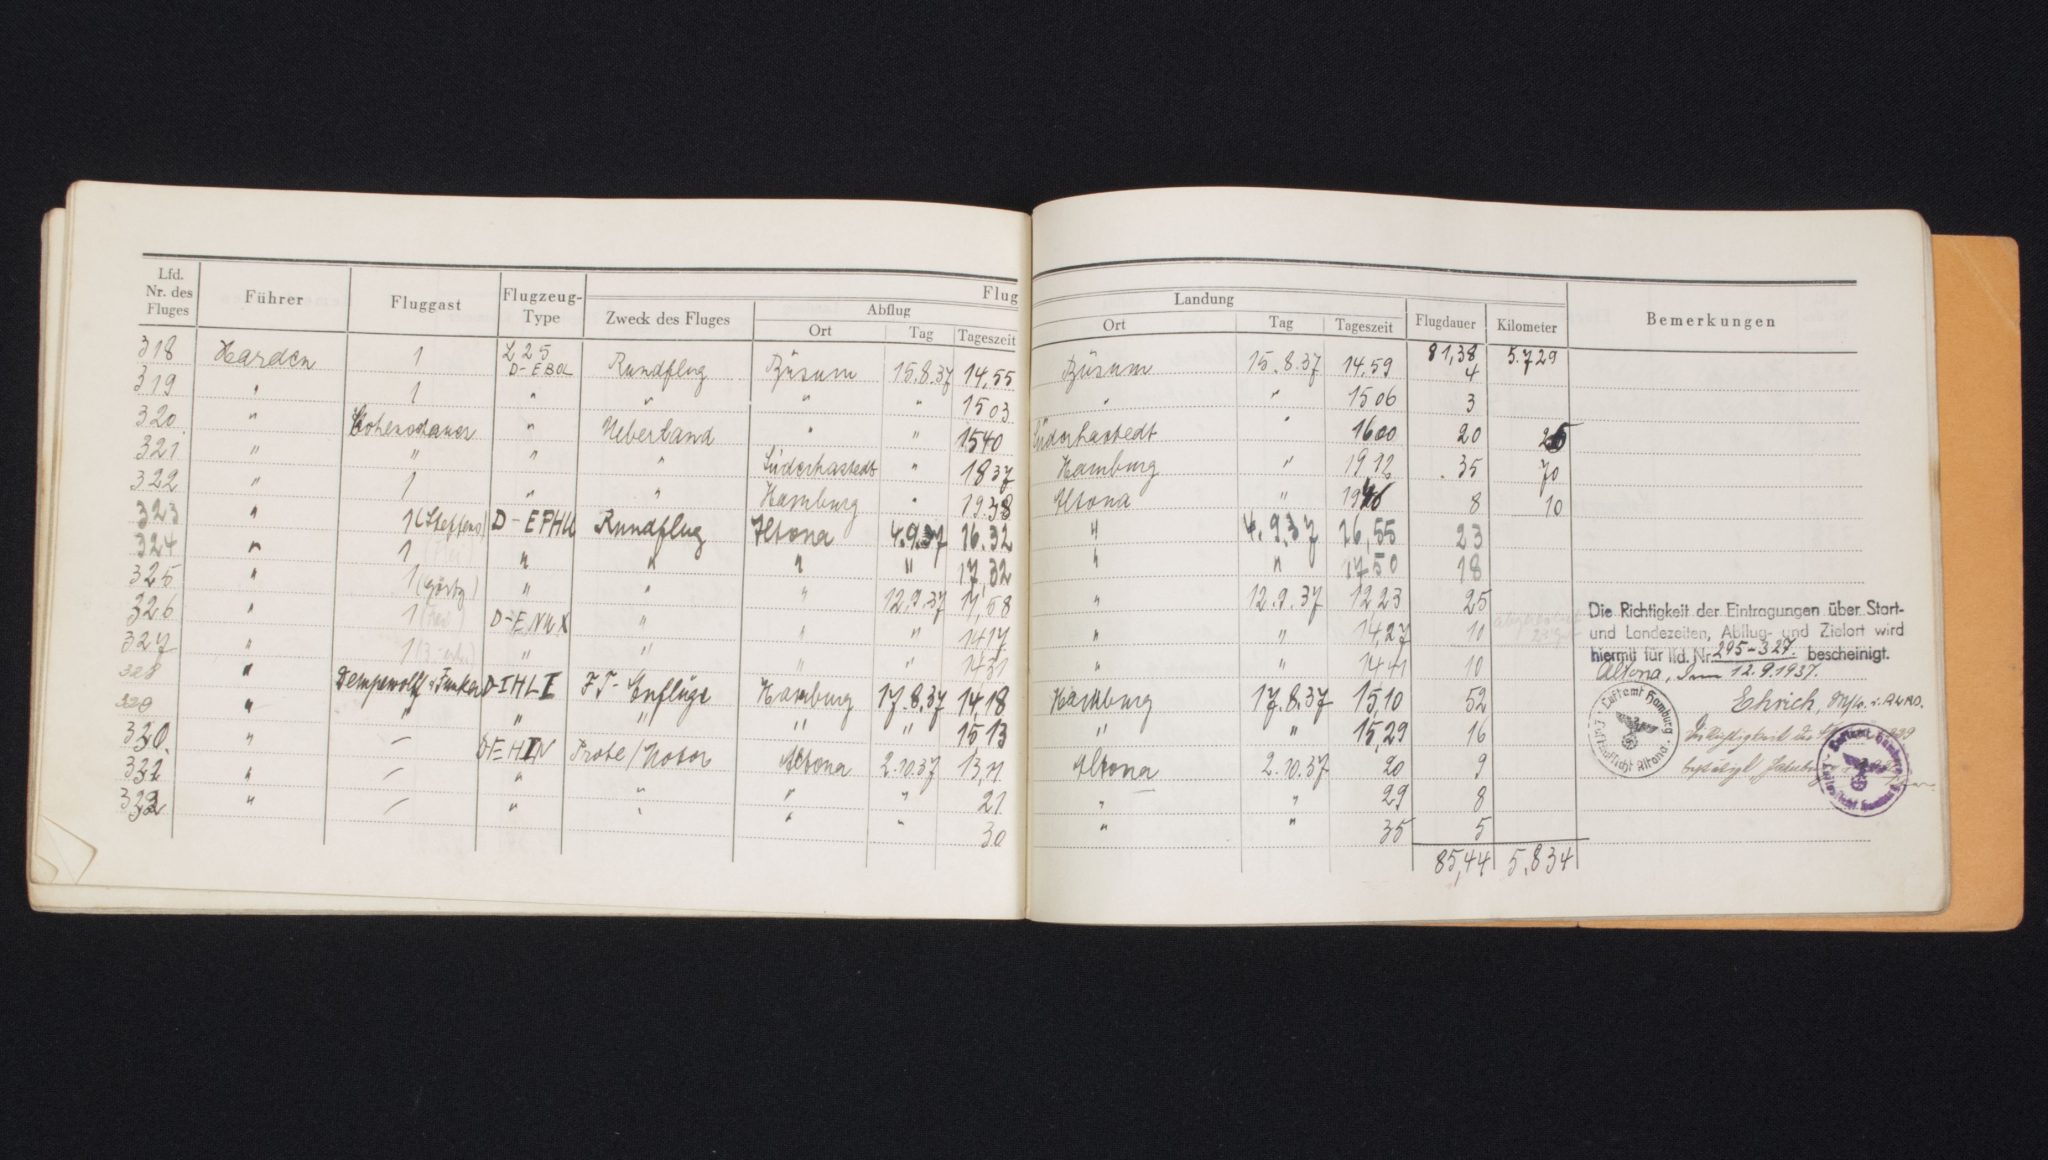 Lfd. Nr. des Fluges Führer Fluggast Flugzeug-Type Zweck des Fluges Flug
Abflug Ort Tag Tageszeit
Landung Ort Tag Tageszeit Flugdauer Kilometer Bemerkungen
81,38 5.729
318 Harden 1 L 25 D-EBOL Rundflug Büsum 15.8.37 14,55 Büsum 15.8.37 14,59 4
319 " 1 " " " " 15 03 " " 15 06 3
320. " " Ueberland " " 15 40 Süderhastedt " 16 00 20 25
321 " " " " Süderhastedt " 18 37 Hamburg " 19 12 35 70
322 " 1 " " Hamburg " 19.38 Altona " 19 46 8 10
323 " 1 (Steffens) D-EPHU Rundflug Altona 4.9.37 16.32 " 4.9.37 16,55 23
324 " 1 " " " " 17,32 " " 17 50 18
325 " 1 " " " 12.9.37 11,58 " 12.9.37 12 23 25
326 " 1 D-ENUX " " " 14 17 " " 14,27 10
327 " 1 " " " " 14 31 " " 14 41 10
328 " D-IHLI FT- Hamburg 17.8.37 14,18 Hamburg 17.8.37 15,10 52
329 " " " " " " 15 13 " " 15,29 16
330. " – Probe/Motor Altona 2.10.37 13,11 Altona 2.10.37 20 9
331 " – " " " " 21 " " 29 8
332 " – " " " " 30 " " 35 5
85,44 5.834
Die Richtigkeit der Eintragungen über Start-
und Landezeiten, Abflug- und Zielort wird
hiermit für lfd. Nr. 295-327. bescheinigt.
Altona, den 12.9.1937.
Ehrich,
Luftamt Hamburg
Luftaufsicht Altona
Luftamt Hamburg